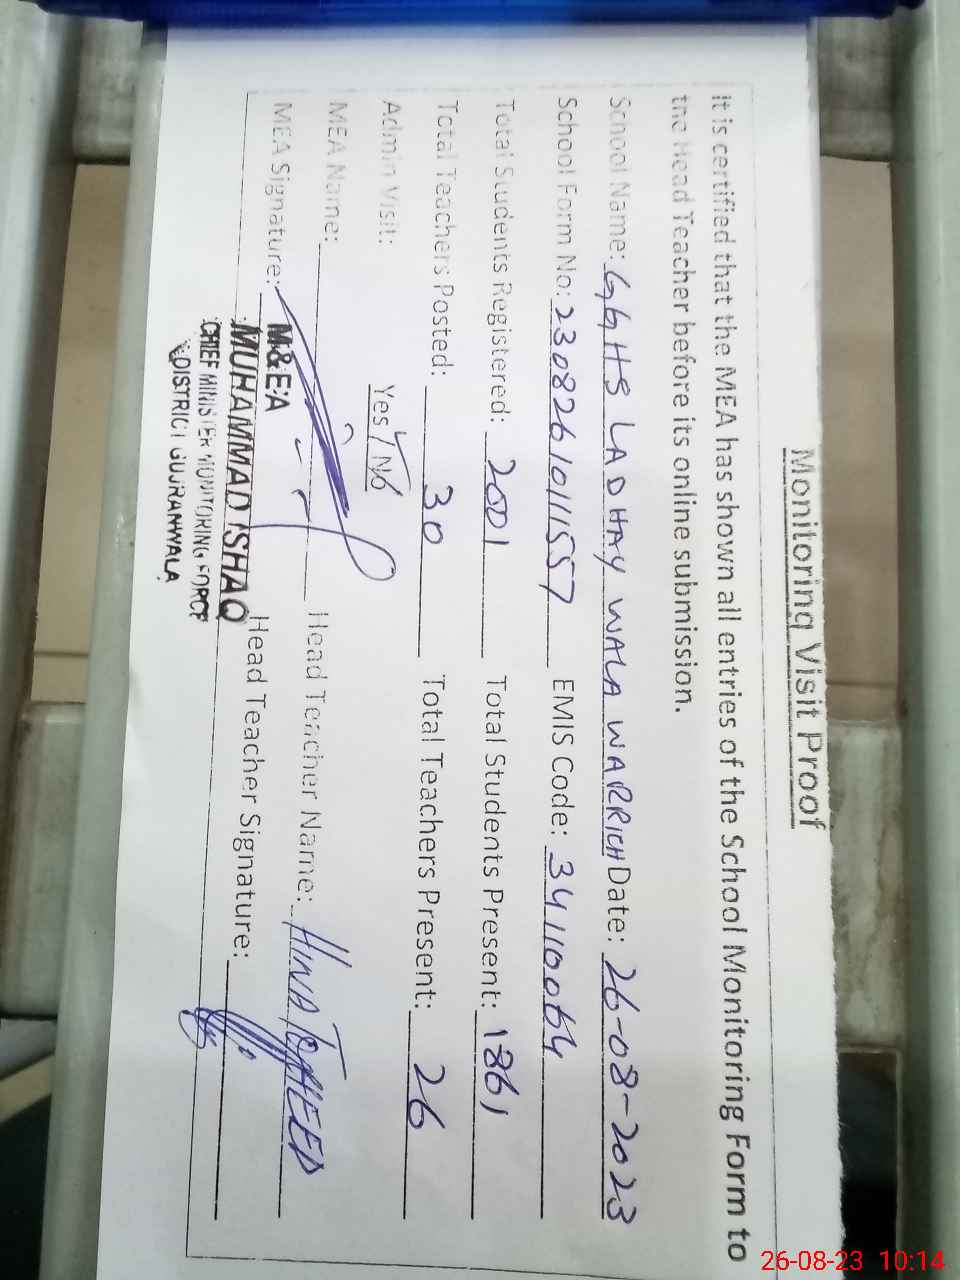 Monitoring Visit Proof
It is certified that the MEA has shown all entries of the School Monitoring Form to
the Head Teacher before its online submission.
School Name: GGHS LADHAY WALA WARRICH Date: 26-08-2023
School Form No: 230826101111557 EMIS Code: 34110064
Total Students Registered: 2001 Total Students Present: 1861
Total Teachers Posted: 30 Total Teachers Present: 26
Admin Visit: Yes / No
MEA Name: Head Teacher Name: HINA TOHEED
MEA Signature: Head Teacher Signature:
M&E:A
MUHAMMAD ISHAQ
CHIEF MINISTER MONITORING FORCE
DISTRICT GUJRANWALA
26-08-23 10:14